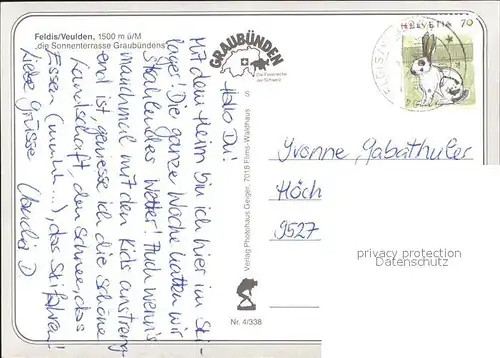 Feldis/Veulden, 1500 m ü/M
"die Sonnenterrasse Graubündens"
GRAUBÜNDEN
Die Ferienecke
der Schweiz
HELVETIA 70
Hallo Du!
Mit dem Heim bin ich hier im Ski-
lager! Die ganze Woche hatten wir
strahlendes Wetter! Auch wenn's
manchmal mit den Kids anstreng
end ist, geniesse ich die schöne
Landschaft, den Schnee, das
Essen (mmhh...), das Skifahren!
Liebe Grüsse Claudia D
Verlag Photohaus Geiger, 7018 Flims-Waldhaus
S
Nr. 4/338
Yvonne Gabathuler
Höch
9527
privacy protection
Datenschutz